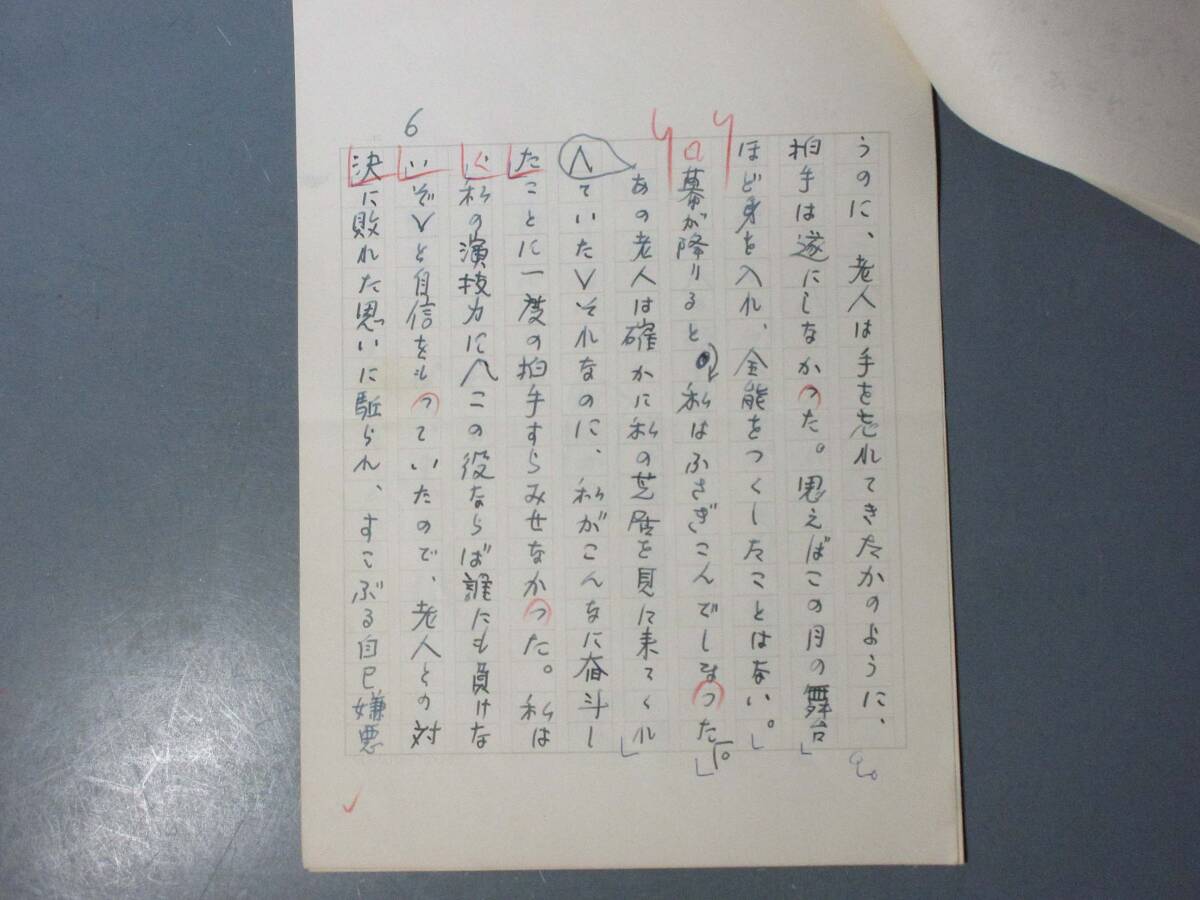 うのに、老人は手を忘れてきたかのように、
拍手は遂にしなかった。思えばこの月の舞台
ほど身を入れ、全能をつくしたことはない。
幕が降りると私はふさぎこんでしまった。
あの老人は確かに私の芝居を見に来てくれ
ていた∨それなのに、私がこんなに奮斗し
たことに一度の拍手すらみせなかった。私は
私の演技力に︿この役ならば誰にも負けな
いぞ∨と自信をもっていたので、老人との対
決に敗れた思いに駈られ、すこぶる自己嫌悪
6